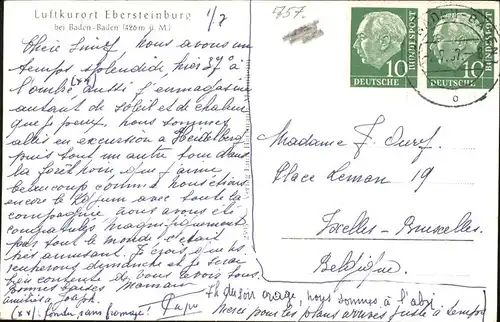 Luftkurort Ebersteinburg
bei Baden-Baden (426 m ü. M.)
1/7
757.
Chère Simy nous avons un
temps splendide, mais 37° à
l'ombre aussi j'emmagasine
autant de soleil et de chaleur
que je peux, nous sommes
allés en excursion à Heidelberg
puis tout un autre tour dans
la forêt noire, que j'aime
beaucoup comme nous étions
encore le 29 juin avec toute la
compagnie nous avons été
congratulés magnifiquement
par tout le monde c'était
très amusant. Je crois que ns
rentrerons dimanche et je serai
bien contente de vous revoir tous
bonnes baises Maman
amitiés à Joseph.
(xx) fondu sans fromage!
Papa
7h du soir orage, nous sommes à l'abri
Merci pour les plans arrivés juste à temps
DEUTSCHE BUNDESPOST 10
DEUTSCHE BUNDESPOST 10
BADEN-BADEN
Madame F. Curf.
Place Leman 19
Ixelles-Bruxelles.
Belgique.